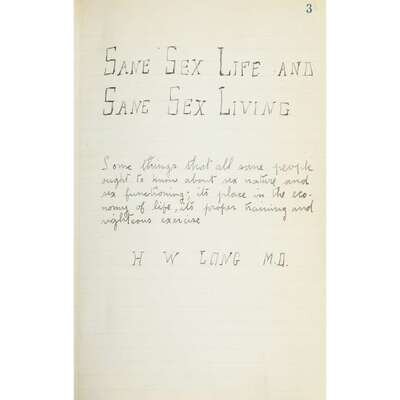 3
SANE SEX LIFE AND
SANE SEX LIVING
Some things that all sane people
ought to know about sex nature and
sex functioning; its place in the eco-
nomy of life, its proper training and
righteous exercise
H W LONG M.D.